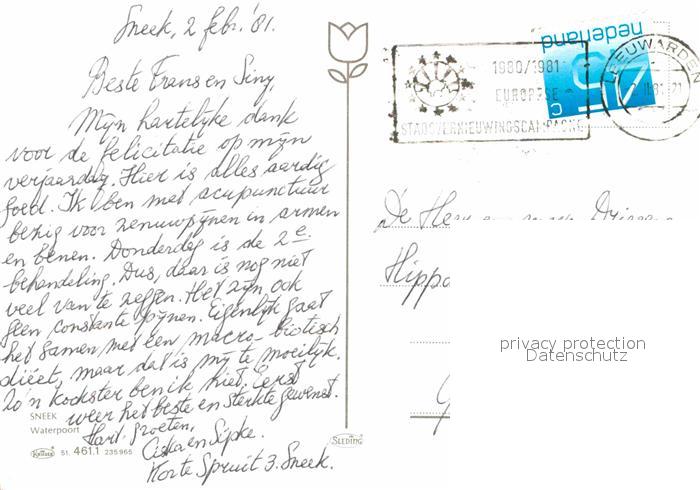 Sneek, 2 febr. '81.
Beste Frans en Siny,
Mijn hartelijke dank
voor de felicitatie op mijn
verjaardag. Hier is alles aardig
goed. Ik ben met acupunctuur
bezig voor zenuwpijnen in armen
en benen. Donderdag is de 2e
behandeling. Dus, daar is nog niet
veel van te zeggen. Het zijn ook
geen constante pijnen. Eigenlijk gaat
het samen met een macro-biotisch
diëet, maar dat is mij te moeilijk.
Zo'n kookster ben ik niet. Eerst
weer het beste en sterkte gewenst.
Hart. groeten,
Ciska en Sipke.
Korte Spruit 3. Sneek.
SNEEK
Waterpoort
51. 461.1 235965
SLEDING
nederland
45 c
1980/1981
EUROPESE
STADSVERNIEUWINGSCAMPAGNE
LEEUWARDEN
De Heer
Hippo
privacy protection
Datenschutz